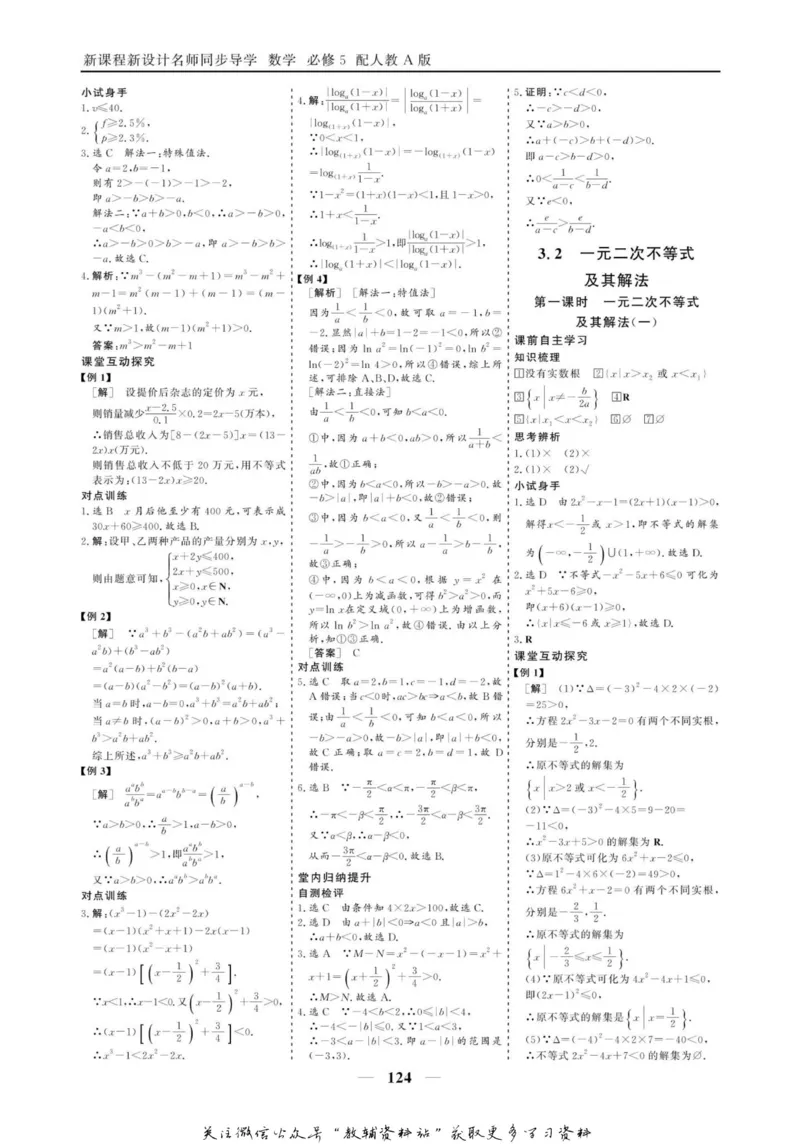 新课程新设计名师同步导学 数学 必修5 配人教A版
小试身手
1. v≤40.
2. {f≥2.5%,
p≥2.3%.
3.选C 解法一:特殊值法.
令 a=2,b=-1,
则有 2>-(-1)>-1>-2,
即 a>-b>b>-a.
解法二:∵a+b>0,b<0,∴a>-b>0,
-a<b<0,
∴a>-b>0>b>-a,即 a>-b>b>
-a.故选C.
4.解析:∵m³-(m²-m+1)=m³-m²+
m-1=m²(m-1)+(m-1)=(m-
1)(m²+1).
又∵m>1,故(m-1)(m²+1)>0.
答案:m³>m²-m+1
课堂互动探究
【例1】
[解] 设提价后杂志的定价为 x 元,
则销量减少 (x-2.5)/0.1 ×0.2=2x-5(万本),
∴销售总收入为[8-(2x-5)]x=(13-
2x)x(万元).
则销售总收入不低于 20 万元,用不等式
表示为:(13-2x)x≥20.
对点训练
1.选B x 月后他至少有 400 元,可表示成
30x+60≥400.故选B.
2.解:设甲、乙两种产品的产量分别为 x,y,
则由题意可知,{x+2y≤400,
2x+y≤500,
x≥0,x∈N,
y≥0,y∈N.
【例2】
[解] ∵a³+b³-(a²b+ab²)=(a³-
a²b)+(b³-ab²)
=a²(a-b)+b²(b-a)
=(a-b)(a²-b²)=(a-b)²(a+b).
当 a=b 时,a-b=0,a³+b³=a²b+ab²;
当 a≠b 时,(a-b)²>0,a+b>0,a³+
b³>a²b+ab².
综上所述,a³+b³≥a²b+ab².
【例3】
[解] a^a b^b/(a^b b^a)=a^(a-b)b^(b-a)=(a/b)^(a-b),
∵a>b>0,∴a/b>1,a-b>0,
∴(a/b)^(a-b)>1,即 a^a b^b/(a^b b^a)>1,
又∵a>b>0,∴a^a b^b>a^b b^a.
对点训练
3.解:(x³-1)-(2x²-2x)
=(x-1)(x²+x+1)-2x(x-1)
=(x-1)(x²-x+1)
=(x-1)[(x-1/2)²+3/4].
∵x<1,∴x-1<0.又(x-1/2)²+3/4>0,
∴(x-1)[(x-1/2)²+3/4]<0.
∴x³-1<2x²-2x.
4.解:|logₐ(1-x)|/|logₐ(1+x)|=|logₐ(1-x)/logₐ(1+x)|=
|log₍₁₊ₓ₎(1-x)|,
∵0<x<1,
∴|log₍₁₊ₓ₎(1-x)|=-log₍₁₊ₓ₎(1-x)
=log₍₁₊ₓ₎ 1/(1-x).
∵1-x²=(1+x)(1-x)<1,且1-x>0,
∴1+x<1/(1-x).
∴log₍₁₊ₓ₎ 1/(1-x)>1,即|logₐ(1-x)|/|logₐ(1+x)|>1,
∴|logₐ(1+x)|<|logₐ(1-x)|.
【例4】
[解析] [解法一:特值法]
因为 1/a<1/b<0,故可取 a=-1,b=
-2.显然|a|+b=1-2=-1<0,所以②
错误;因为 ln a²=ln(-1)²=0,ln b²=
ln(-2)²=ln 4>0,所以④错误,综上所
述,可排除A、B、D,故选C.
[解法二:直接法]
由 1/a<1/b<0,可知 b<a<0.
①中,因为 a+b<0,ab>0,所以 1/(a+b)<
1/ab,故①正确;
②中,因为 b<a<0,所以-b>-a>0.故
-b>|a|,即|a|+b<0,故②错误;
③中,因为 b<a<0,又 1/a<1/b<0,则
-1/a>-1/b>0,所以 a-1/a>b-1/b,
故③正确;
④中,因为 b<a<0,根据 y=x² 在
(-∞,0)上为减函数,可得 b²>a²>0,而
y=ln x在定义域(0,+∞)上为增函数,
所以 ln b²>ln a²,故④错误.由以上分
析,知①③正确.
[答案] C
对点训练
5.选C 取 a=2,b=1,c=-1,d=-2,故
A错误;当c<0时,ac>bc⇒a<b,故B错
误;由 1/a<1/b<0,可知 b<a<0,所以
-b>-a>0,故-b>|a|,即|a|+b<0,
故C正确;取 a=c=2,b=d=1,故D
错误.
6.选B ∵-π/2<α<π,-π/2<β<π,
∴-π<-β<π/2,∴-3π/2<α-β<3π/2.
又∵α<β,∴α-β<0,
从而-3π/2<α-β<0.故选B.
堂内归纳提升
自测检评
1.选C 由条件知 4×2x>100,故选C.
2.选D 由 a+|b|<0⇒a<0 且|a|>b,
∴a+b<0,故选D.
3.选A ∵M-N=x²-(-x-1)=x²+
x+1=(x+1/2)²+3/4>0.
∴M>N.故选A.
4.选C ∵-4<b<2,∴0≤|b|<4,
∴-4<-|b|≤0.又∵1<a<3,
∴-3<a-|b|<3.即 a-|b|的范围是
(-3,3).
5.证明:∵c<d<0,
∴-c>-d>0,
又∵a>b>0,
∴a+(-c)>b+(-d)>0.
即 a-c>b-d>0,
∴0<1/(a-c)<1/(b-d).
又∵e<0,
∴e/(a-c)>e/(b-d).
3.2 一元二次不等式
及其解法
第一课时 一元二次不等式
及其解法(一)
课前自主学习
知识梳理
1没有实数根 2{x|x>x₂ 或 x<x₁}
3{x|x≠-b/2a} 4R
5{x|x₁<x<x₂} 6∅ 7∅
思考辨析
1.(1)× (2)×
2.(1)× (2)√
小试身手
1.选D 由 2x²-x-1=(2x+1)(x-1)>0,
解得 x<-1/2 或 x>1,即不等式的解集
为(-∞,-1/2)∪(1,+∞).故选D.
2.选D ∵不等式-x²-5x+6≤0 可化为
x²+5x-6≥0,
即(x+6)(x-1)≥0,
∴{x|x≤-6或 x≥1},故选D.
3.R
课堂互动探究
【例1】
[解] (1)∵Δ=(-3)²-4×2×(-2)
=25>0,
∴方程 2x²-3x-2=0 有两个不同实根,
分别是-1/2,2.
∴原不等式的解集为
{x|x>2或x<-1/2}.
(2)∵Δ=(-3)²-4×5=9-20=
-11<0,
∴x²-3x+5>0 的解集为 R.
(3)原不等式可化为 6x²+x-2≤0,
∵Δ=1²-4×6×(-2)=49>0,
∴方程 6x²+x-2=0 有两个不同实根,
分别是-2/3,1/2.
∴原不等式的解集为
{x|-2/3≤x≤1/2}.
(4)∵原不等式可化为 4x²-4x+1≤0,
即(2x-1)²≤0,
∴原不等式的解集是{x|x=1/2}.
(5)∵Δ=(-4)²-4×2×7=-40<0,
∴不等式 2x²-4x+7<0 的解集为∅.
— 124 —
关注微信公众号“教辅资料站”获取更多学习资料